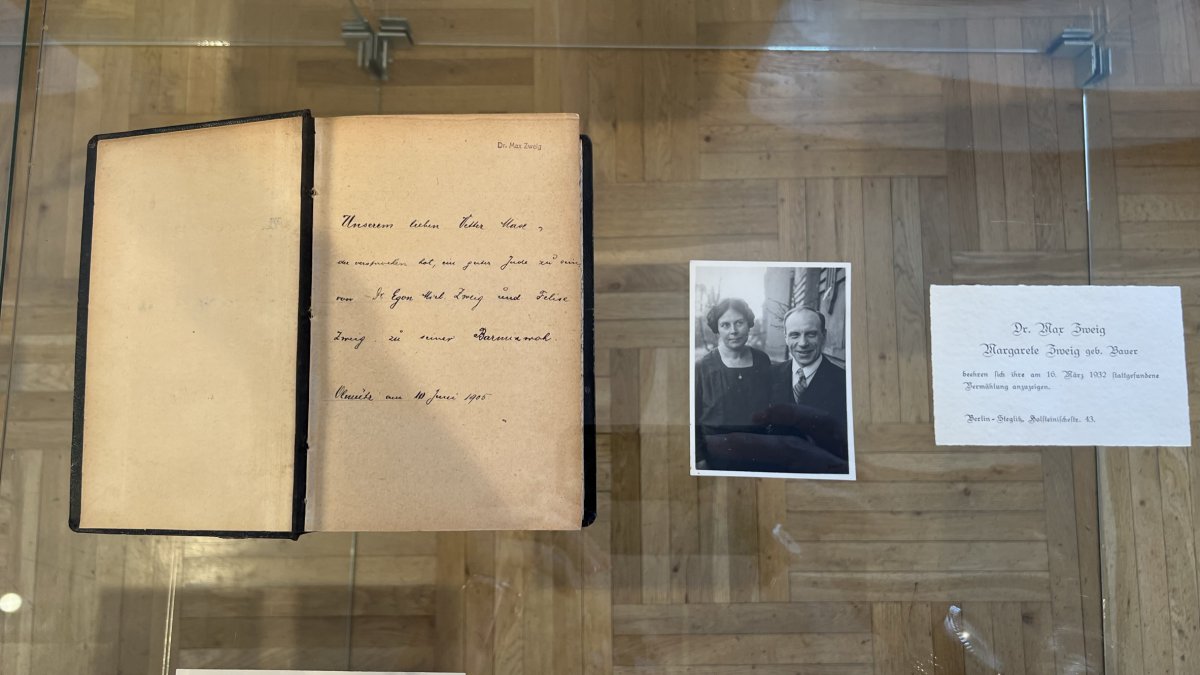 Dr. Max Zweig
Unserem lieben Vetter Max,
der versprochen hat, ein guter Jude zu sein,
von Dr Egon Mich. Zweig und Felise
Zweig zu seiner Barmizwoh.
Olmütz am 10 Juni 1905
Dr. Max Zweig
Margarete Zweig geb. Bauer
beehren sich ihre am 16. März 1932 stattgefundene
Vermählung anzuzeigen.
Berlin-Steglitz, Holsteinischestr. 43.